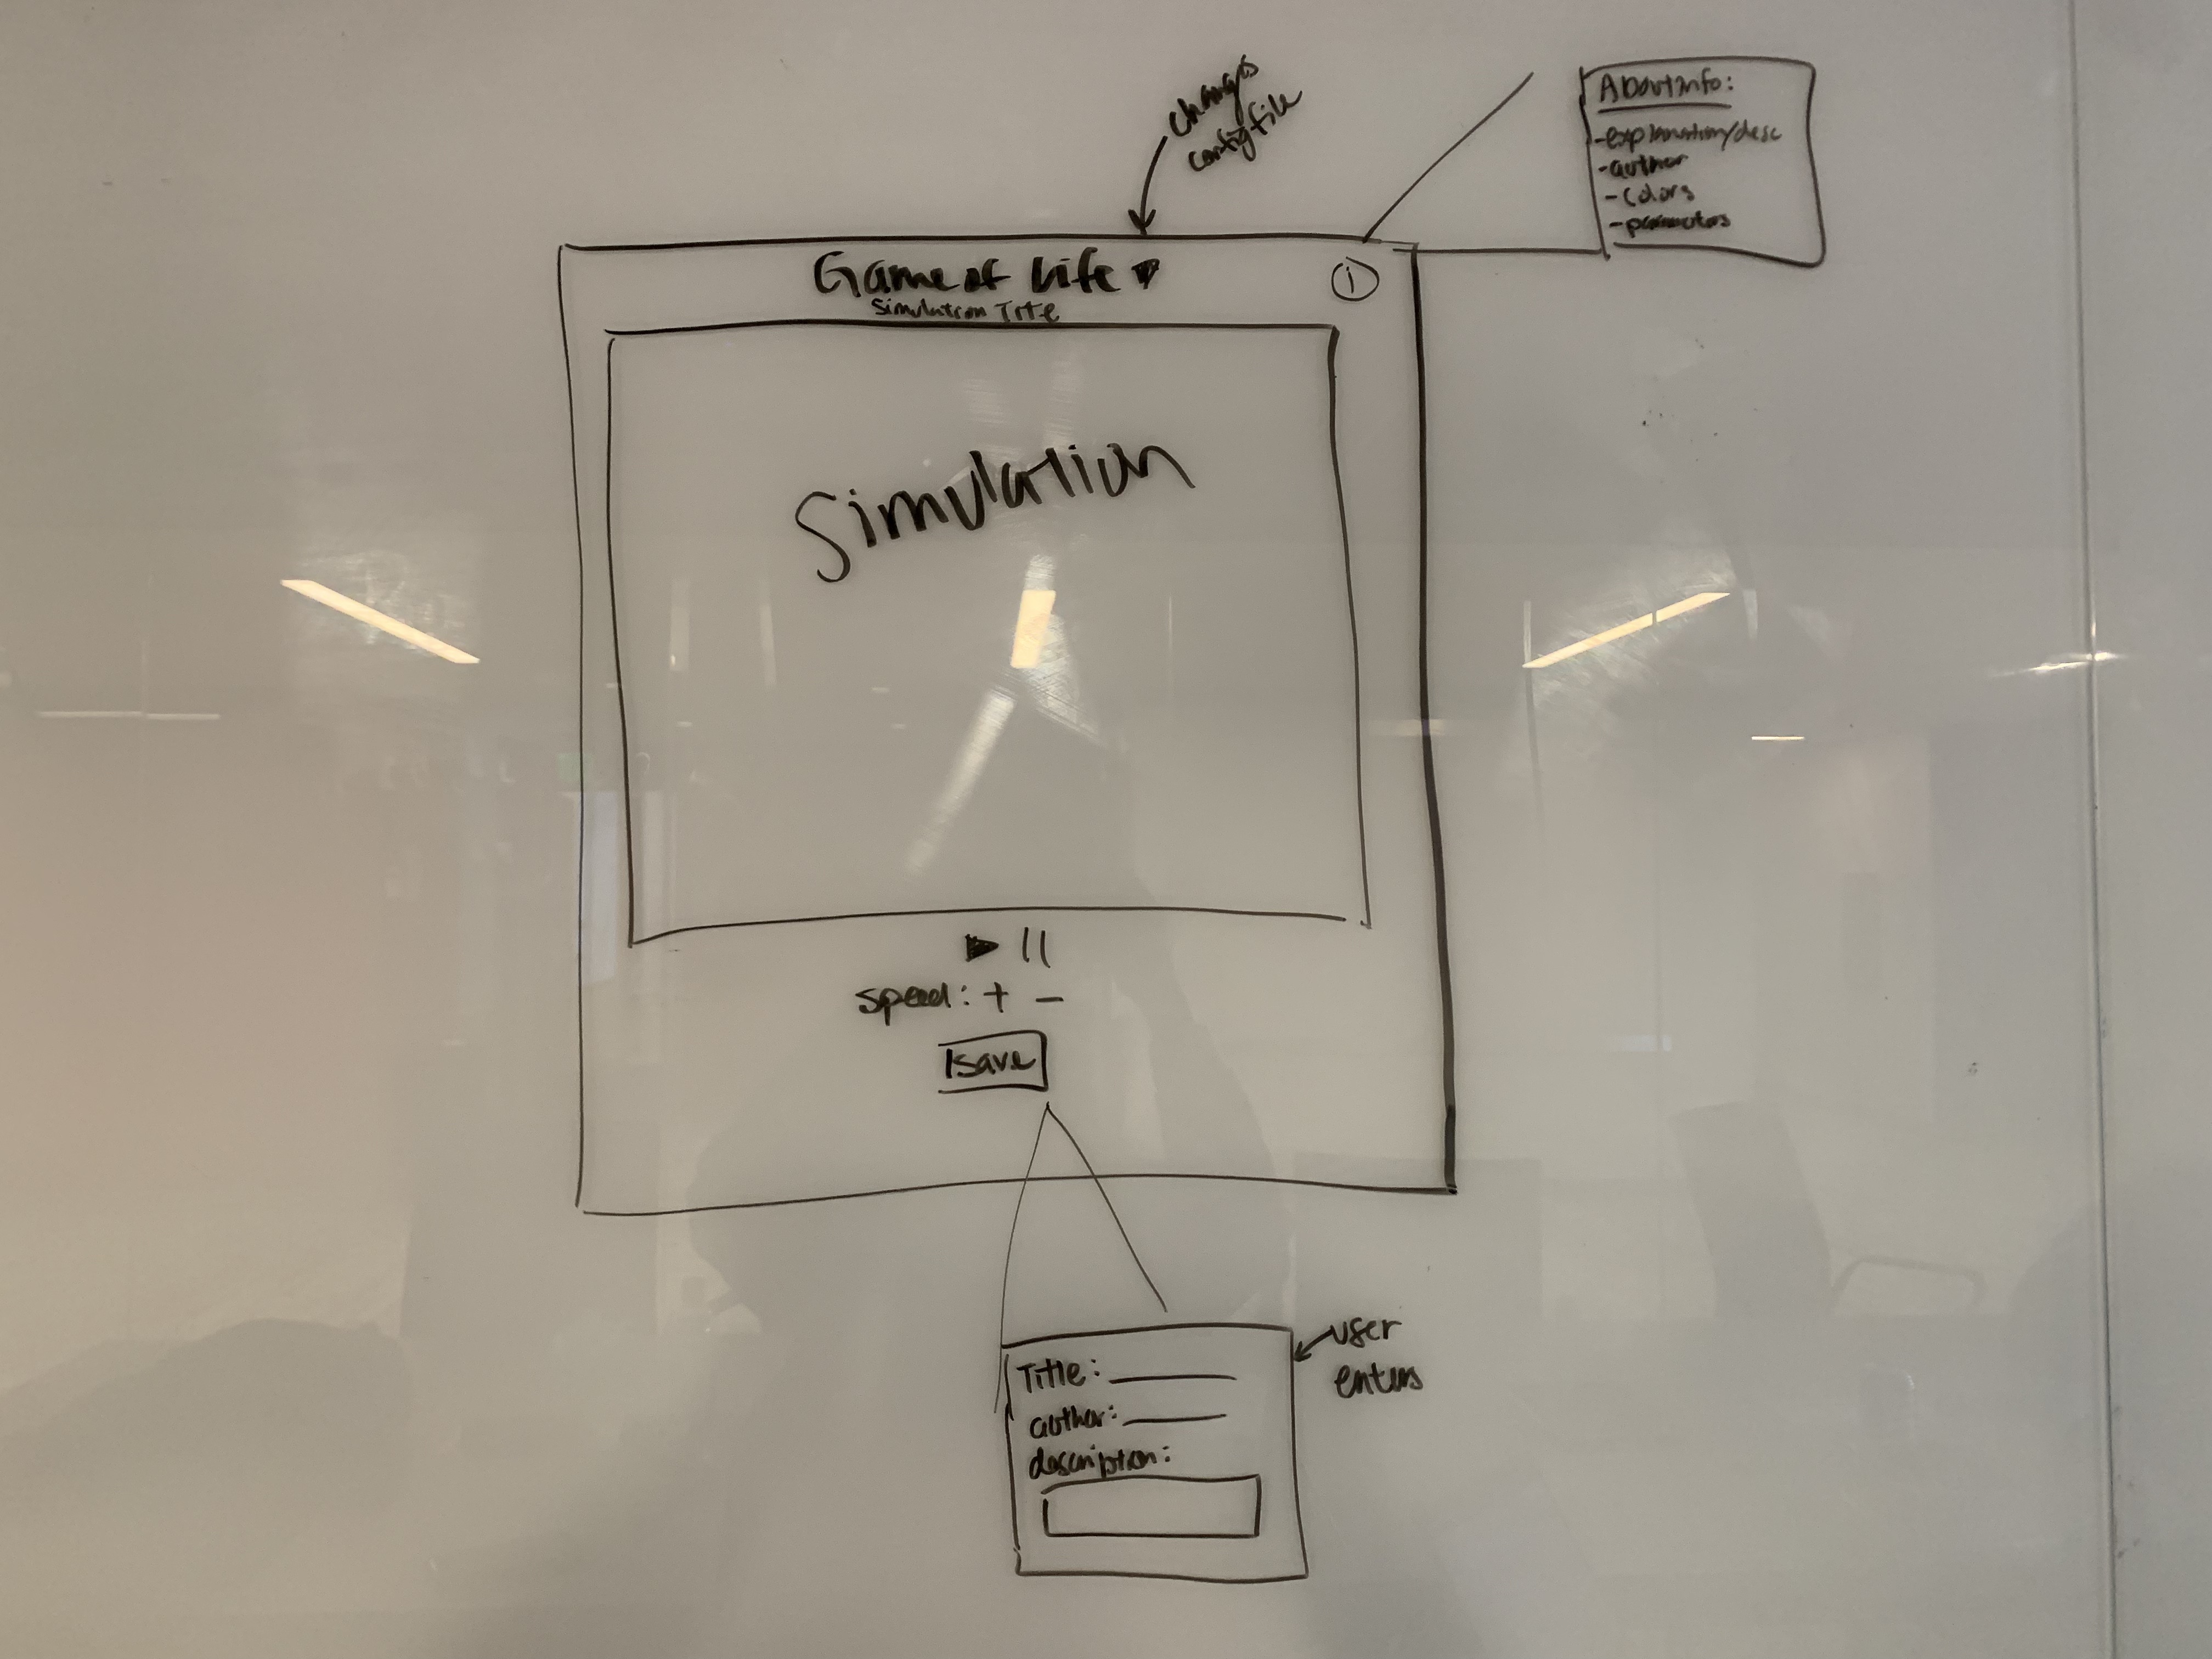 changes
config file
About Info:
-explanation/desc
-author
-colors
-parameters
Game of Life ▼
Simulation Title
i
Simulation
▶ ||
speed: + -
save
Title:
author:
description:
user
enters